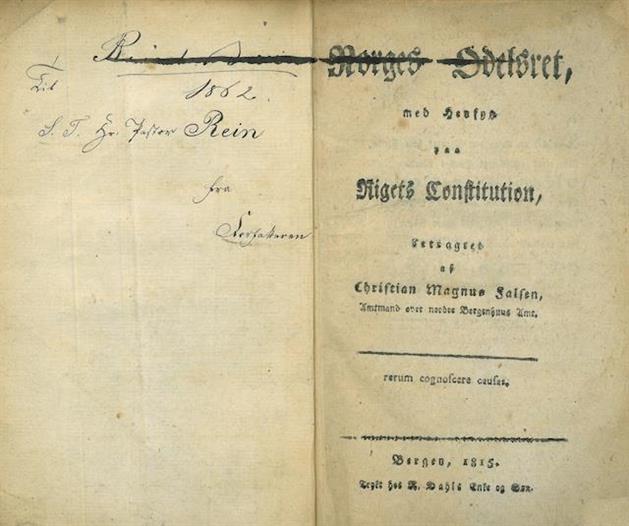 1862.
Til
S. T. Hr. Pastor Rein
fra
Forfatteren
Norges Odelsret,
med Hensyn
paa
Rigets Constitution,
betragtet
af
Christian Magnus Falsen,
Amtmand over nordre Bergenhuus Amt.
rerum cognoscere causas.
Bergen, 1815.
Trykt hos R. Dahls Enke og Søn.